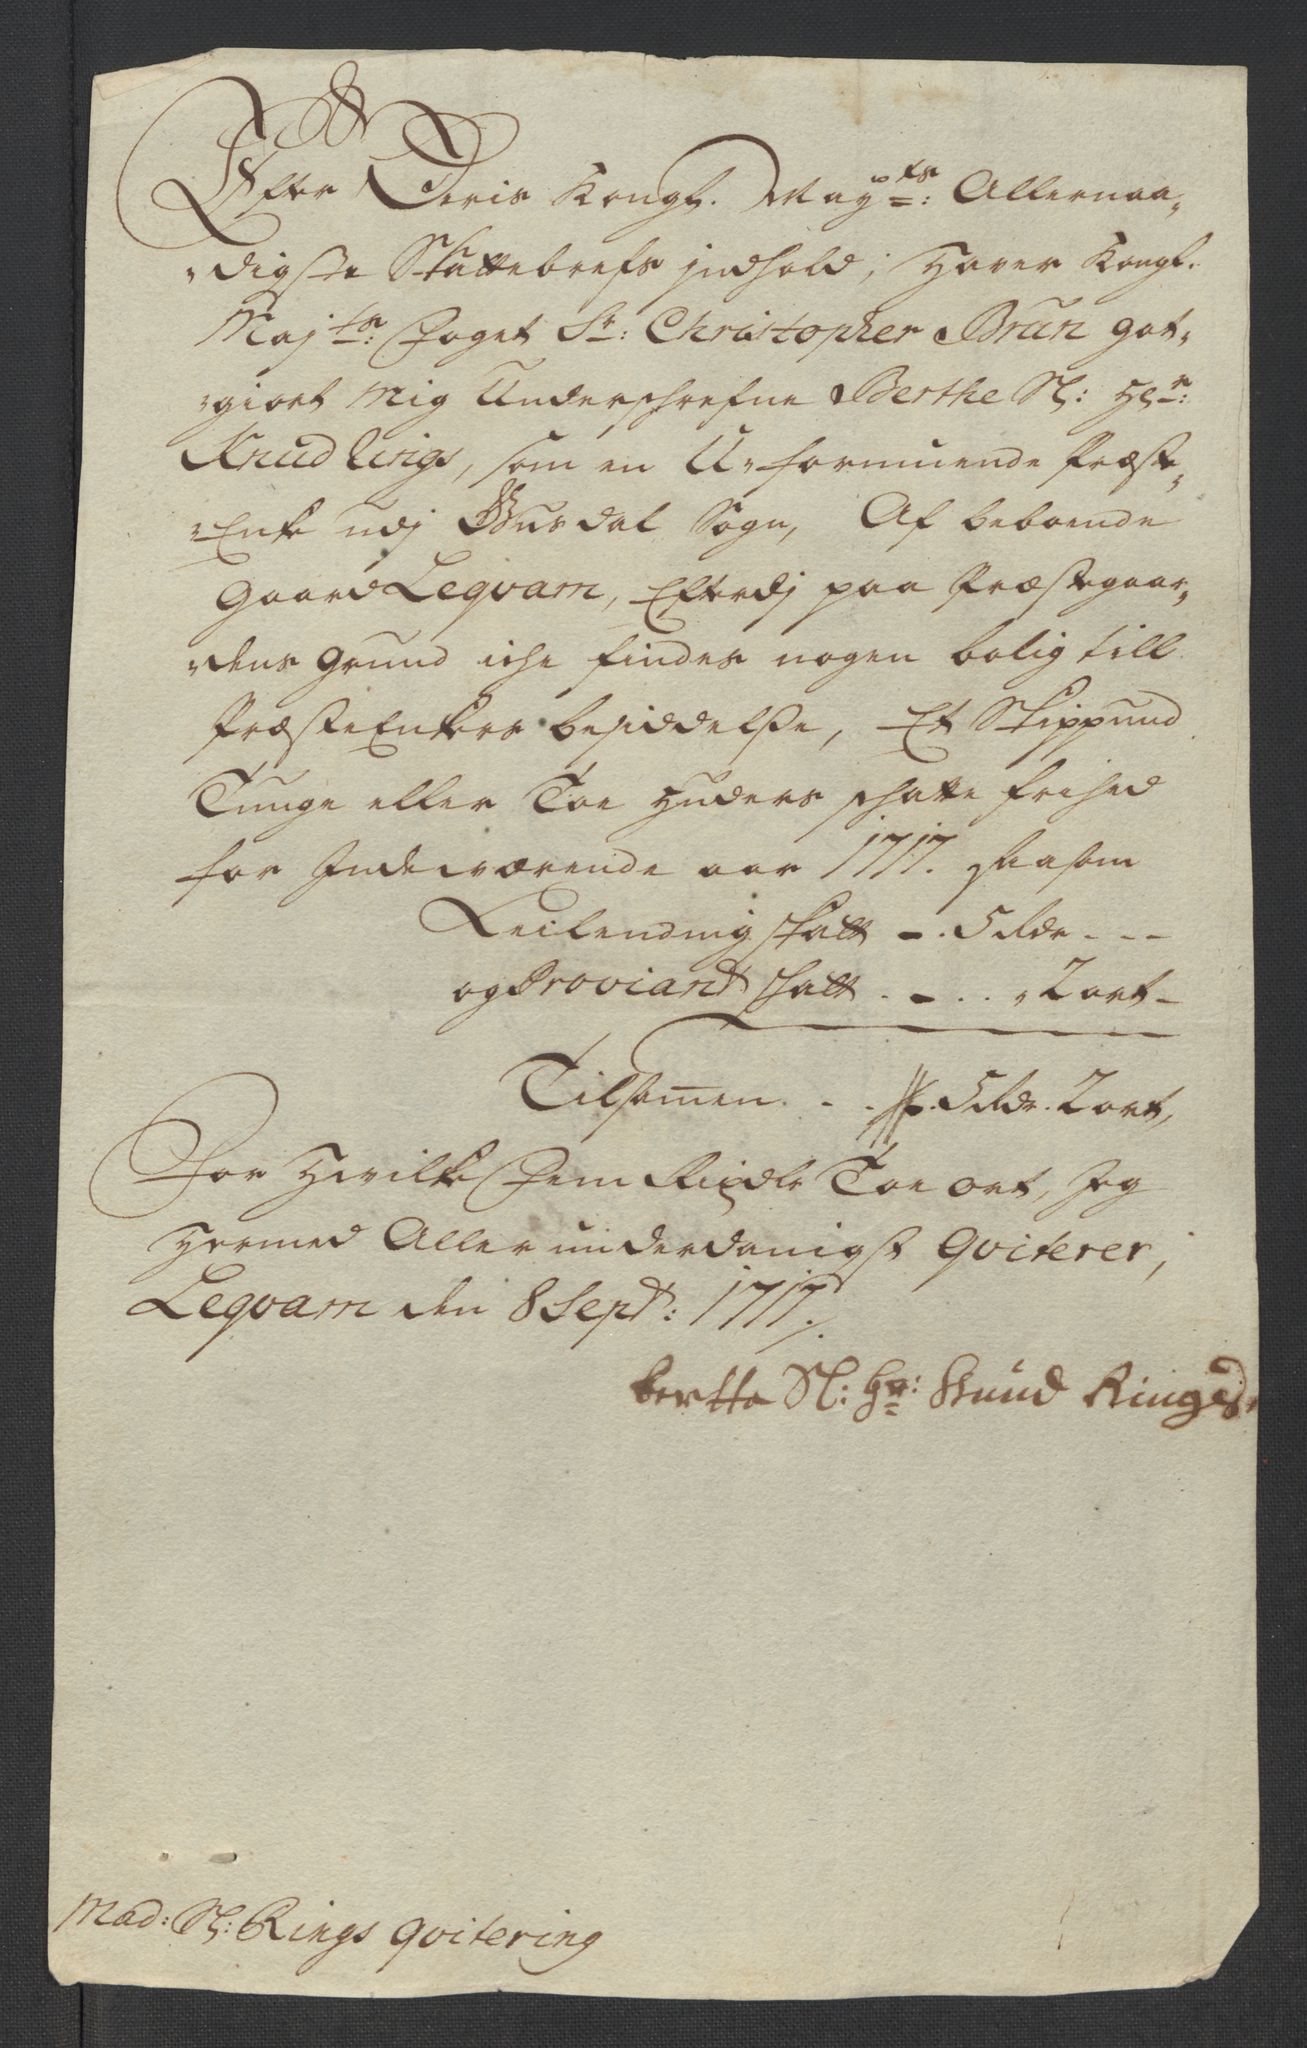 Efter Deris Kongl. May.ts: Allernaa„
„digste Skattebrefs jndhold; Haver Kongl.
Maj.ts: Foget Sr: Christopher Brun got„
„giort Mig Underschrefne Berthe Sl: Hr:
Knud Rings, som en U„formuende Præste„
„Enke udj Gusdal Sogn, Af beboende
Gaard Leqvam, Efterdj paa Præstegaar„
„dens Grund iche findes nogen bolig till
PræsteEnkers besiddelsse, Et Skippund
Tunge eller Toe Huders schatte frihed
for Indeværende aar 1717. saasom
Leilending skatt -. 5 Rdr - - -
og Proviant schatt . - . . „ 2 ort -
Tilsam̄en . - . 5 Rdr. 2 ort,
For Hvilke Fem Rixdlr Toe ort, Jeg
Hermed Allerunderdanigst Qviterer,
Leqvam den 8 Sept: 1717.
bertte Sl: Hr: Knud Rings
Mad: Sl: Rings qvitering